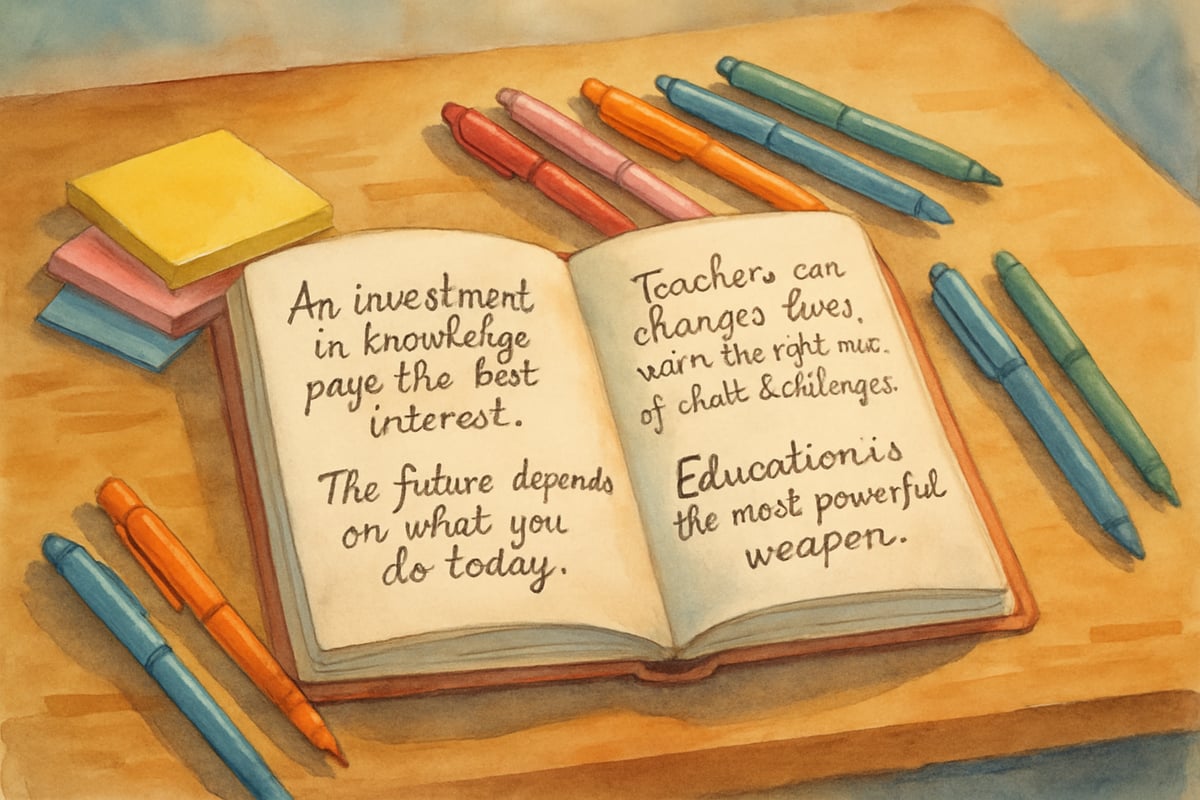 An investment
in knowkehge
paye the best
interest.
The future depends
on what you
do today.
Teachers can
changes lives,
warn the right mux.
of chalt & chilenges.
Education is
the most powerful
weapen.